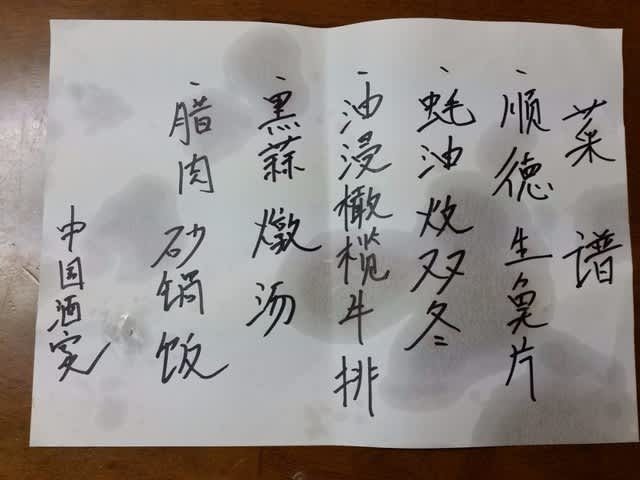 菜谱
·顺德生鱼片
·蚝油炆双冬
·油浸橄榄牛排
·黑蒜燉汤
·腊肉砂锅饭
中国酒